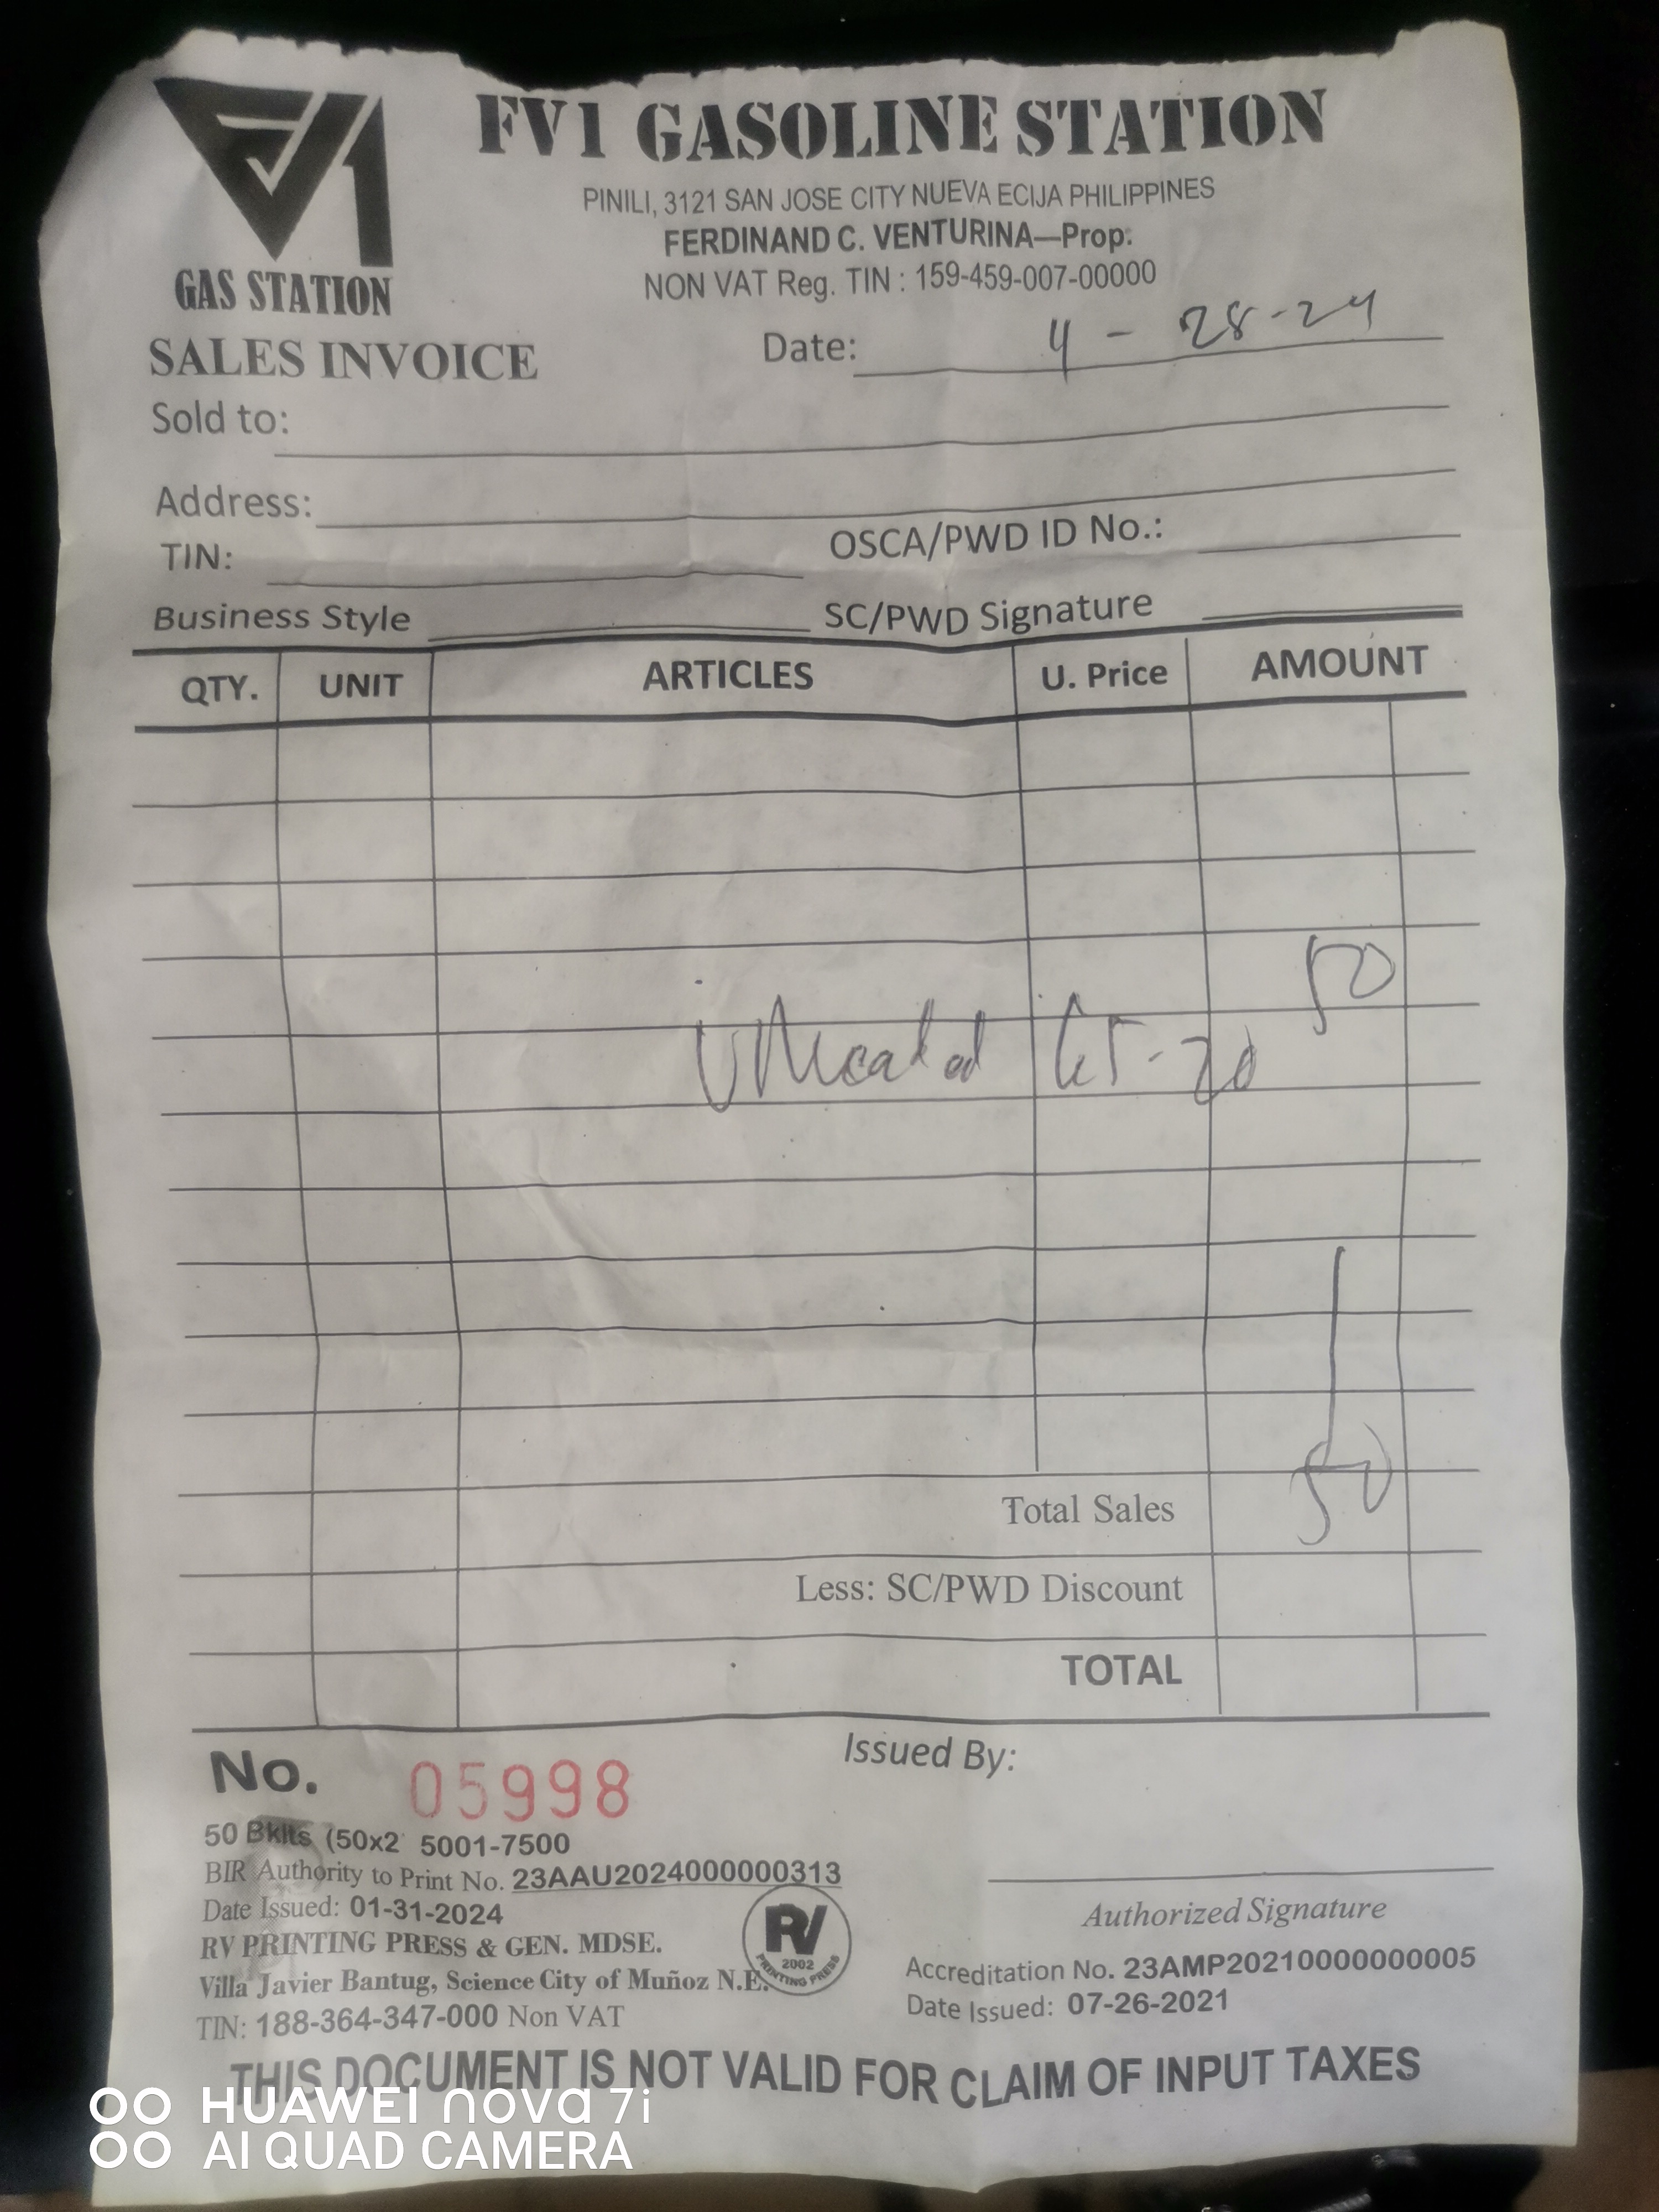 FV1 GASOLINE STATION
PINILI, 3121 SAN JOSE CITY NUEVA ECIJA PHILIPPINES
FERDINAND C. VENTURINA—Prop.
NON VAT Reg. TIN : 159-459-007-00000
GAS STATION
SALES INVOICE Date: 4 - 28-24
Sold to:
Address:
TIN: OSCA/PWD ID No.:
Business Style SC/PWD Signature
QTY. UNIT ARTICLES U. Price AMOUNT
50
65-20
50
Total Sales
Less: SC/PWD Discount
TOTAL
No. 05998 Issued By:
50 Bklts (50x2 5001-7500
BIR Authority to Print No. 23AAU2024000000313
Date Issued: 01-31-2024
RV PRINTING PRESS & GEN. MDSE.
Villa Javier Bantug, Science City of Muñoz N.E.
TIN: 188-364-347-000 Non VAT
RV
2002
PRINTING PRESS
Authorized Signature
Accreditation No. 23AMP20210000000005
Date Issued: 07-26-2021
THIS DOCUMENT IS NOT VALID FOR CLAIM OF INPUT TAXES
HUAWEI nova 7i
AI QUAD CAMERA